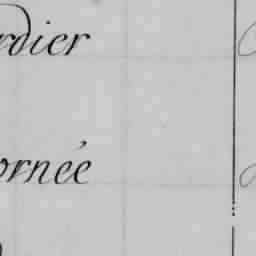 rdier
ornée